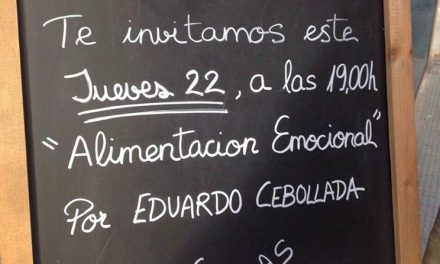 Te invitamos este
Jueves 22, a las 19,00h
"Alimentacion Emocional"
Por EDUARDO CEBOLLADA